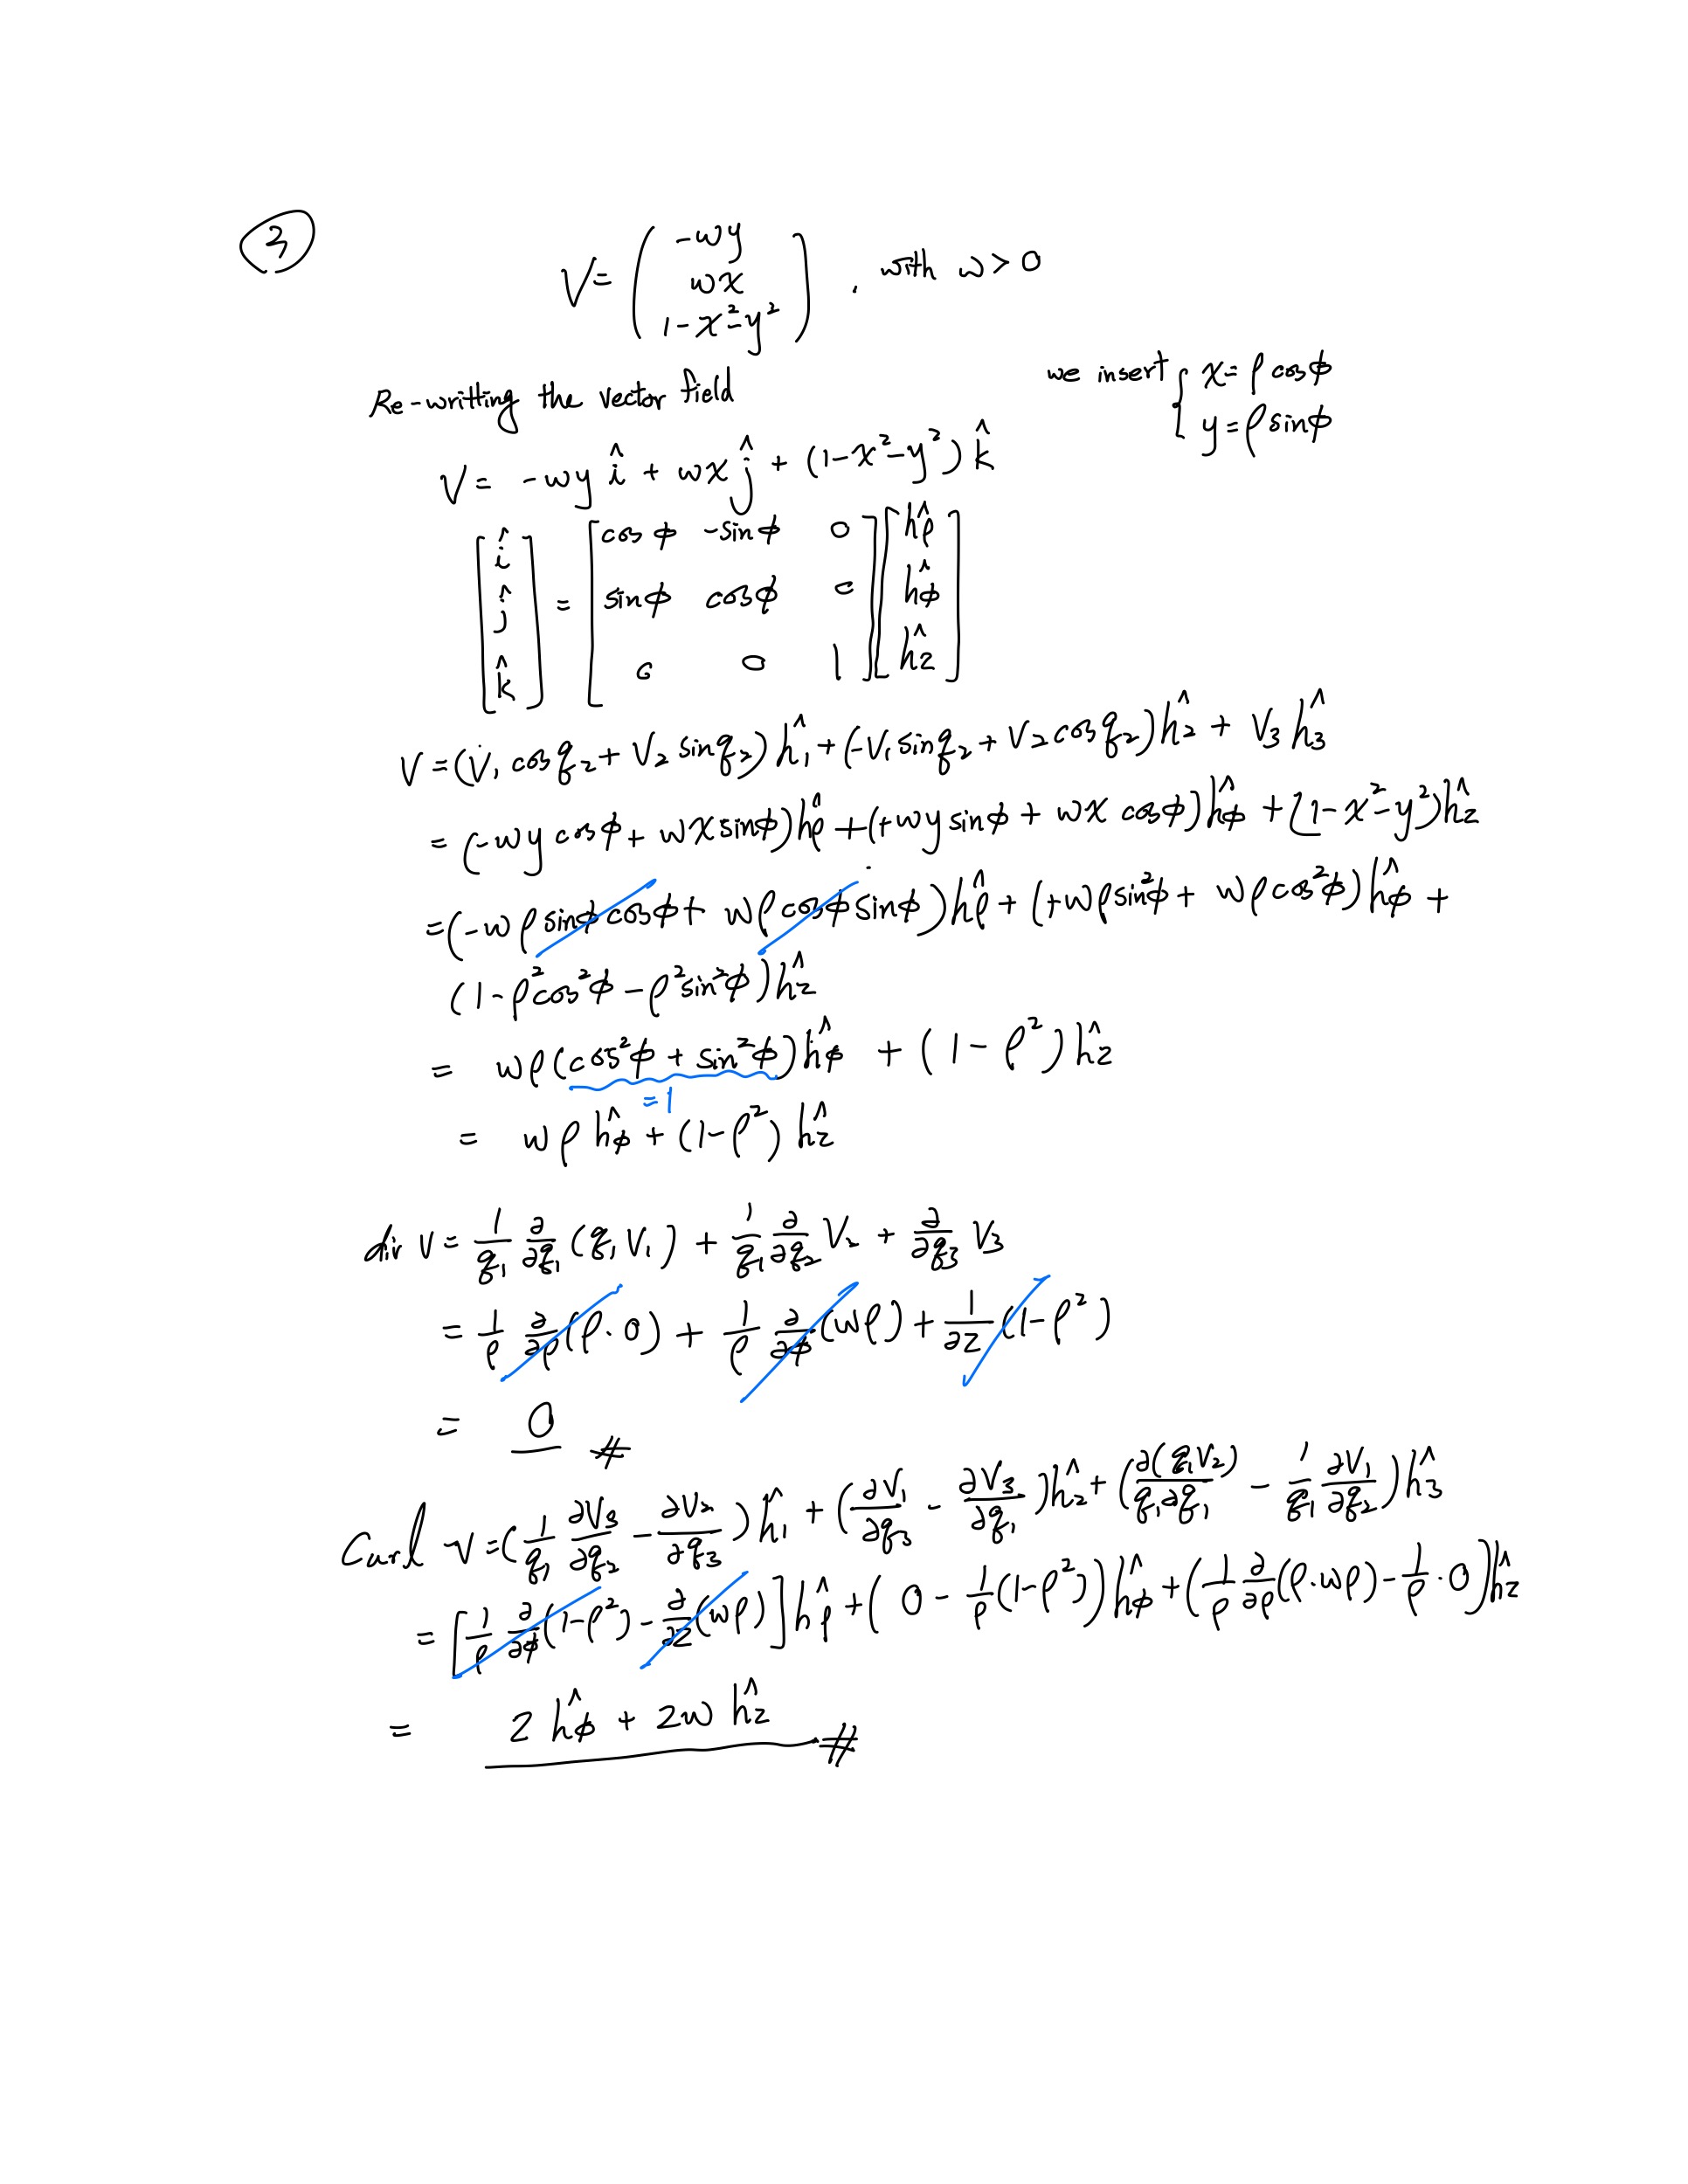 ③
V = ( -wy
wx
1-x²-y² ) , with w > 0
Re-writting the vector field
we insert { x = ρ cosϕ
y = ρ sinϕ
V = -wy î + wx ĵ + (1-x²-y²) k̂
[ î ĵ k̂ ] = [ cosϕ -sinϕ 0
sinϕ cosϕ 0
0 0 1 ] [ ĥρ ĥϕ ĥz ]
V = (V₁ cosq₂ + V₂ sinq₂) ĥ₁ + (-V₁ sinq₂ + V₂ cosq₂) ĥ₂ + V₃ ĥ₃
= (-wy cosϕ + wx sinϕ) ĥρ + (+wy sinϕ + wx cosϕ) ĥϕ + (1-x²-y²) ĥz
= (-wρ sinϕ cosϕ + wρ cosϕ sinϕ) ĥρ + (+wρ sin²ϕ + wρ cos²ϕ) ĥϕ +
(1-ρ²cos²ϕ - ρ²sin²ϕ) ĥz
= wρ (cos²ϕ + sin²ϕ) ĥϕ + (1-ρ²) ĥz
=1
= wρ ĥϕ + (1-ρ²) ĥz
div V = 1/q₁ ∂/∂q₁ (q₁V₁) + 1/q₁ ∂/∂q₂ V₂ + ∂/∂q₃ V₃
= 1/ρ ∂/∂ρ (ρ·0) + 1/ρ ∂/∂ϕ (wρ) + 1/∂z (1-ρ²)
= 0 #
Curl V = (1/q₁ ∂V₃/∂q₂ - ∂V₂/∂q₃) ĥ₁ + (∂V₁/∂q₃ - ∂V₃/∂q₁) ĥ₂ + (∂(q₁V₂)/q₁∂q₁ - 1/q₁ ∂V₁/∂q₂) ĥ₃
= [1/ρ ∂/∂ϕ (1-ρ²) - ∂/∂z (wρ)] ĥρ + (0 - 1/ρ (1-ρ²)) ĥϕ + (1/ρ ∂/∂ρ (ρ·wρ) - 1/ρ · 0) ĥz
= 2 ĥϕ + 2w ĥz #